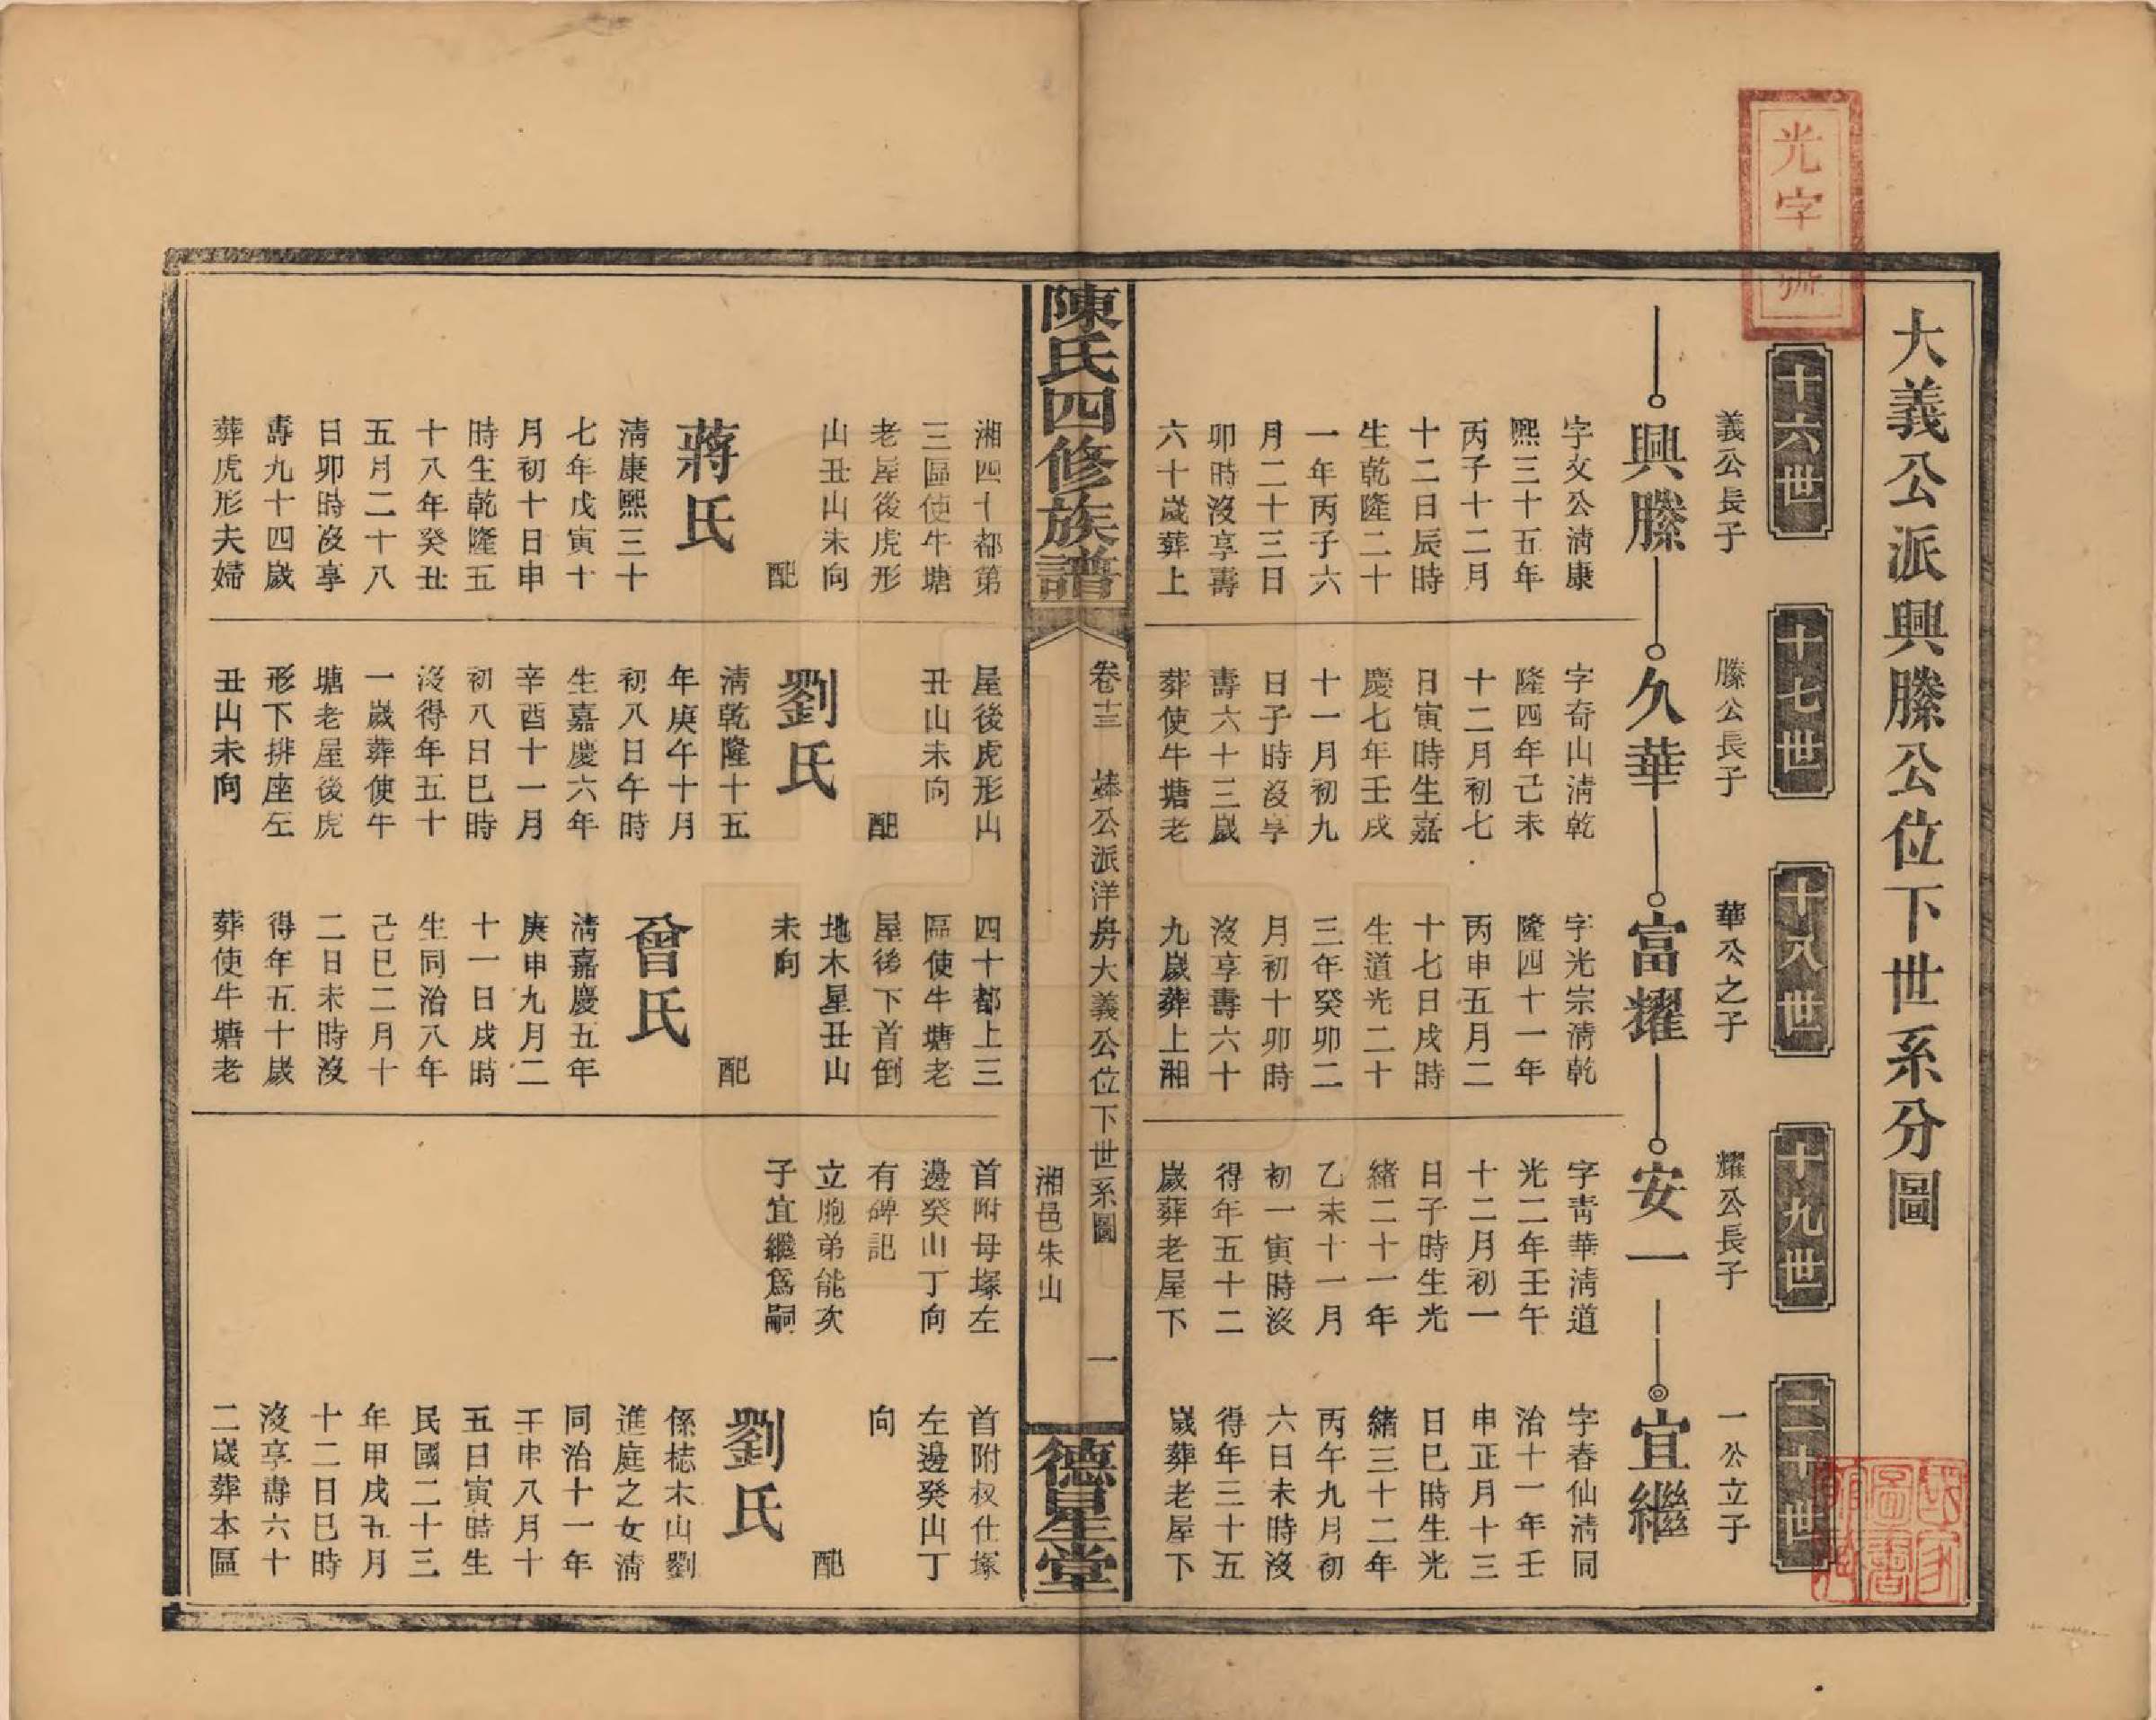 大義公派興滕公位下世系分圖
光字號
十六世
十七世
十八世
十九世
二十世
義公長子
興滕
字文公清康
熙三十五年
丙子十二月
十二日辰時
生乾隆二十
一年丙子六
月二十三日
卯時沒享壽
六十歲葬上
湘四十都第
三區使牛塘
老屋後虎形
山丑山未向
配
蔣氏
清康熙三十
七年戊寅十
月初十日申
時生乾隆五
十八年癸丑
五月二十八
日卯時沒享
壽九十四歲
葬虎形夫婦
滕公長子
久華
字奇山清乾
隆四年己未
十二月初七
日寅時生嘉
慶七年壬戌
十一月初九
日子時沒享
壽六十三歲
葬使牛塘老
屋後虎形山
丑山未向
配
劉氏
清乾隆十五
年庚午十月
初八日午時
生嘉慶六年
辛酉十一月
初八日巳時
沒得年五十
一歲葬使牛
塘老屋後虎
形下排座左
丑山未向
華公之子
富耀
字光宗清乾
隆四十一年
丙申五月二
十七日戌時
生道光二十
三年癸卯二
月初十卯時
沒享壽六十
九歲葬上湘
四十都上三
區使牛塘老
屋後下首倒
地木星丑山
未向
配
曾氏
清嘉慶五年
庚申九月二
十一日戌時
生同治八年
己巳二月十
二日未時沒
得年五十歲
葬使牛塘老
耀公長子
安一
字青華清道
光二年壬午
十二月初一
日子時生光
緒二十一年
乙未十一月
初一寅時沒
得年五十二
歲葬老屋下
首附母塚左
邊癸山丁向
有碑記
立胞弟能次
子宜繼爲嗣
一公立子
宜繼
字春仙清同
治十一年壬
申正月十三
日巳時生光
緒三十二年
丙午九月初
六日未時沒
得年三十五
歲葬老屋下
首附叔仕塚
左邊癸山丁
向
配
劉氏
係梽木山劉
進庭之女清
同治十一年
壬申八月十
五日寅時生
民國二十三
年甲戌五月
十二日巳時
沒享壽六十
二歲葬本區
陳氏四修族譜
卷十三
公派洋房大義公位下世系圖
一
湘邑朱山
德星堂